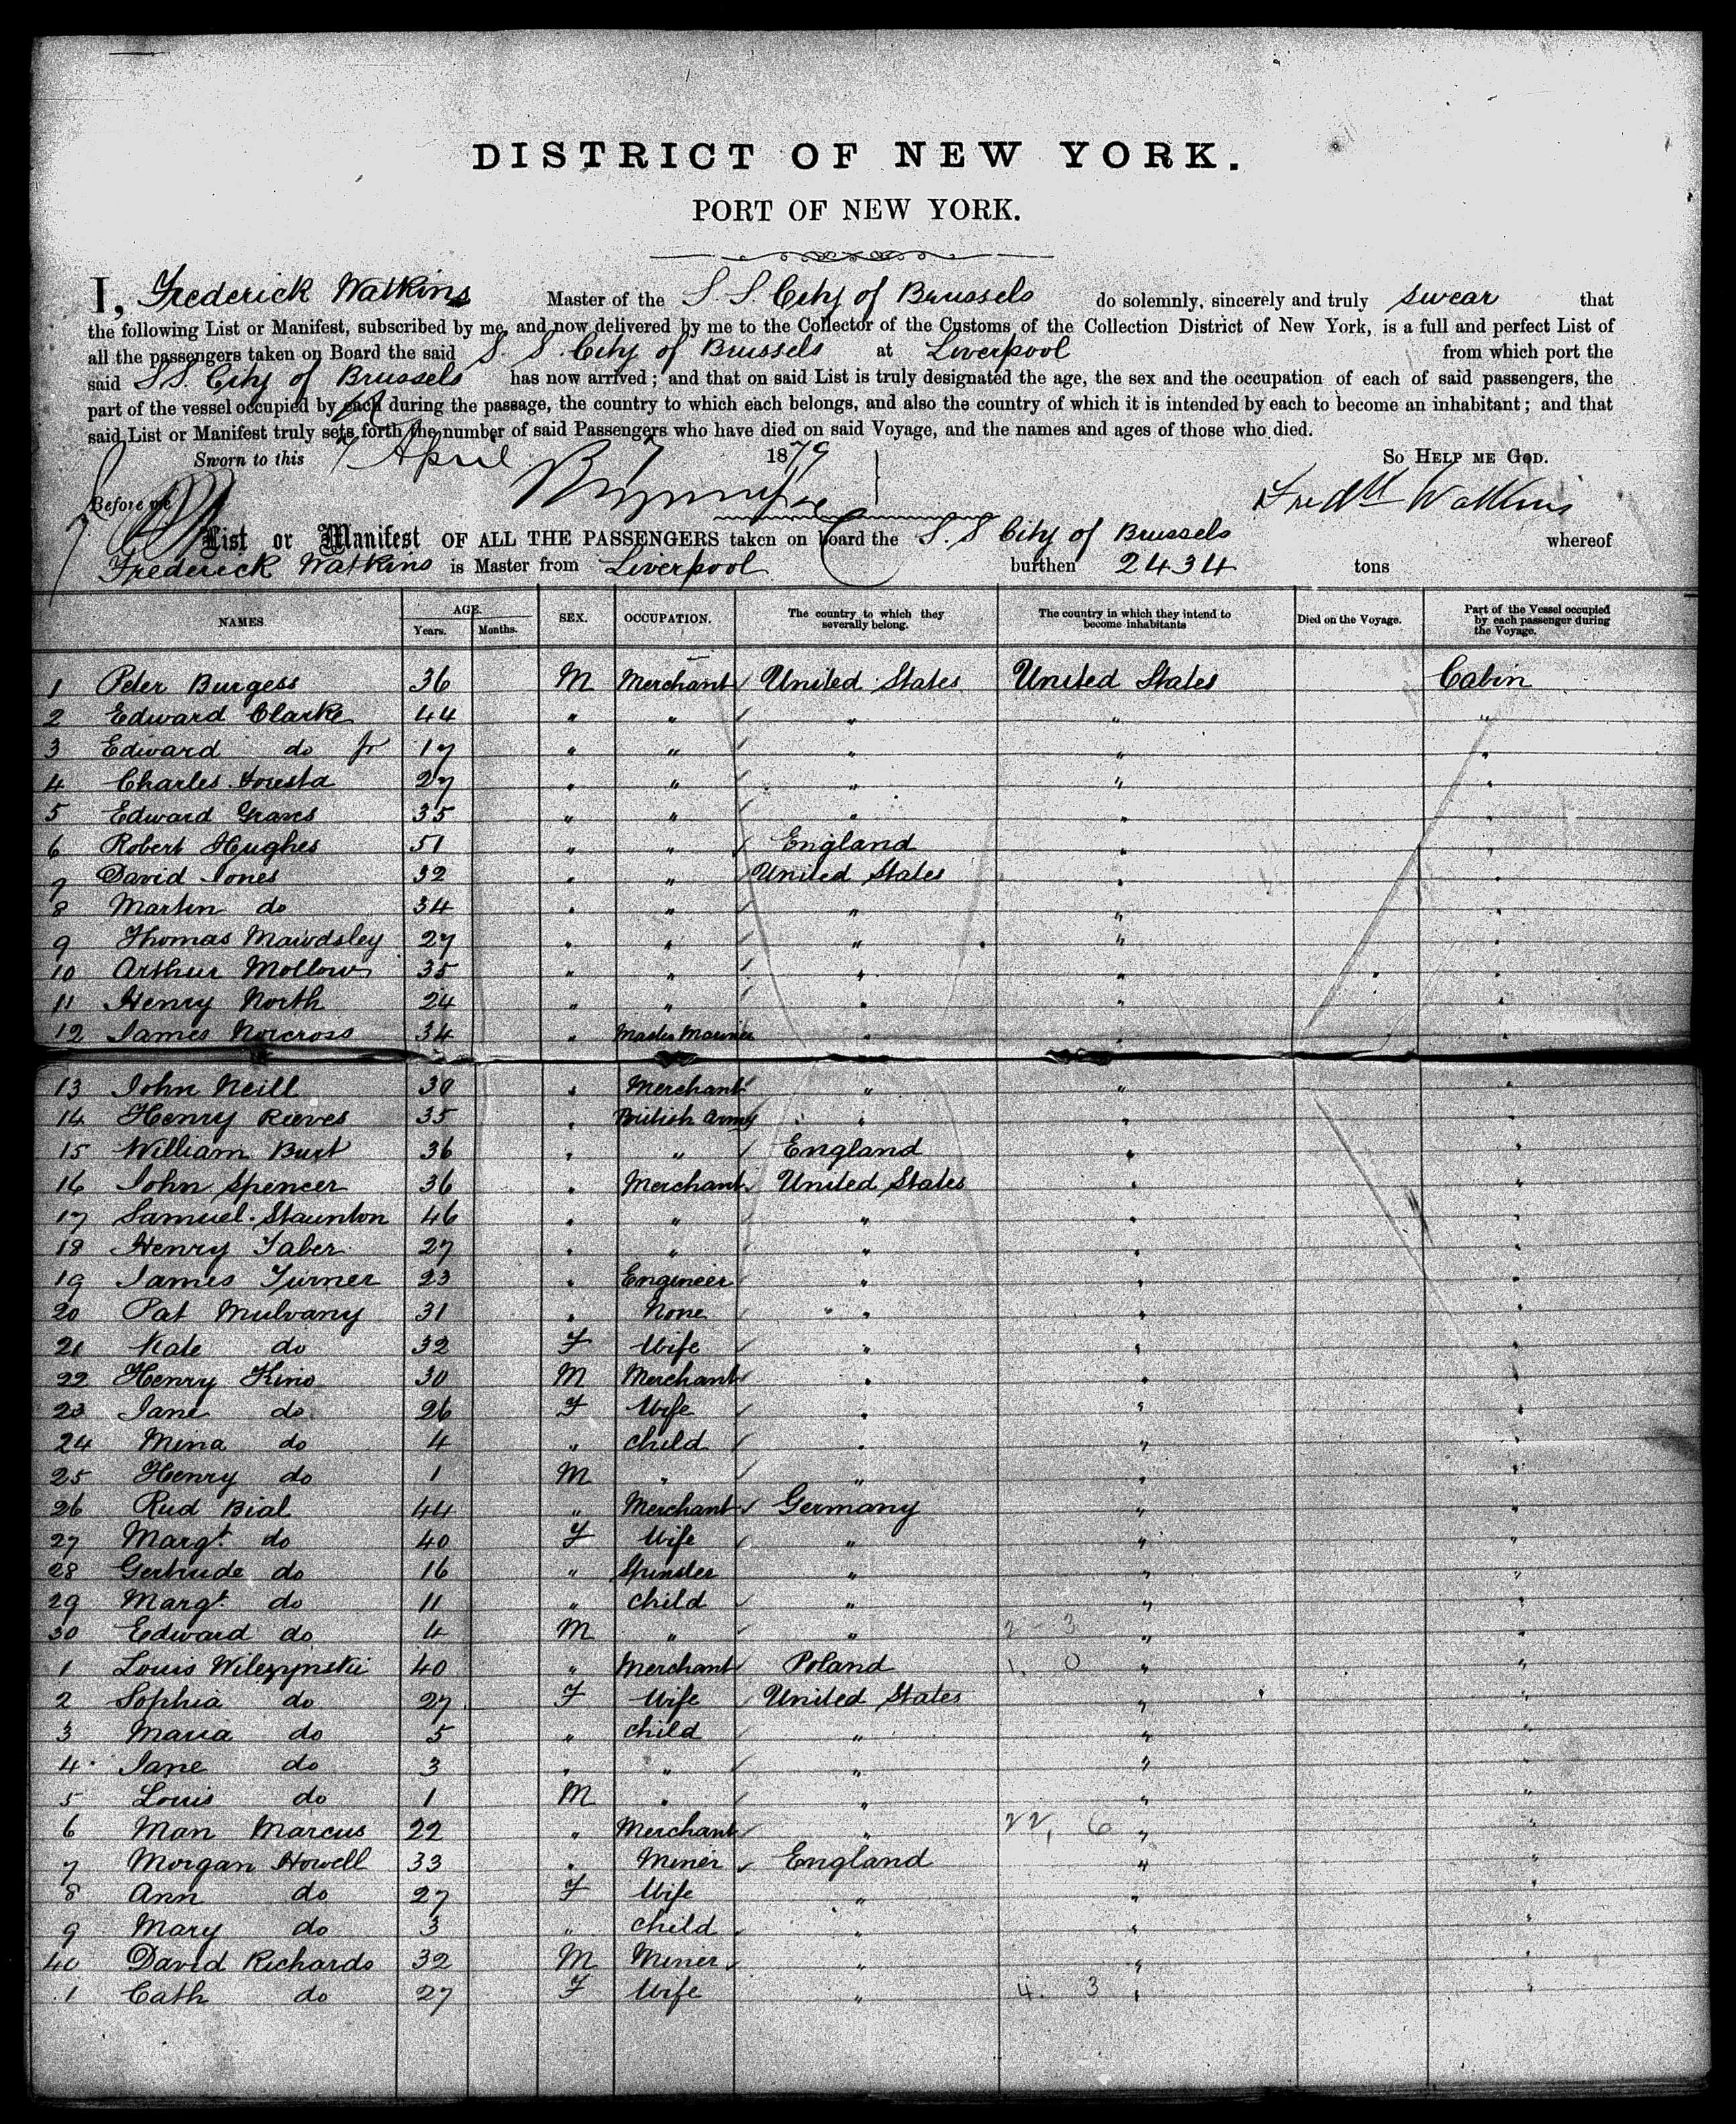 DISTRICT OF NEW YORK.
PORT OF NEW YORK.
I, Frederick Watkins Master of the S S City of Brussels do solemnly, sincerely and truly swear that
the following List or Manifest, subscribed by me, and now delivered by me to the Collector of the Customs of the Collection District of New York, is a full and perfect List of
all the passengers taken on Board the said S. S. City of Brussels at Liverpool from which port the
said S.S. City of Brussels has now arrived; and that on said List is truly designated the age, the sex and the occupation of each of said passengers, the
part of the vessel occupied by each during the passage, the country to which each belongs, and also the country of which it is intended by each to become an inhabitant; and that
said List or Manifest truly sets forth the number of said Passengers who have died on said Voyage, and the names and ages of those who died.
Sworn to this 7 April 1879 So HELP ME GOD.
Before me Fredk Watkins
List or Manifest OF ALL THE PASSENGERS taken on board the S. S City of Brussels whereof
Frederick Watkins is Master from Liverpool burthen 2434 tons
NAMES. AGE. Years. Months. SEX. OCCUPATION. The country to which they severally belong. The country in which they intend to become inhabitants Died on the Voyage. Part of the Vessel occupied by each passenger during the Voyage.
1 Peter Burgess 36 M Merchant United States United States Cabin
2 Edward Clarke 44 " " " " "
3 Edward do Jr 17 " " " " "
4 Charles 27 " " " " "
5 Edward Graves 35 " " " " "
6 Robert Hughes 51 " " England " "
7 David Jones 32 " " United States " "
8 Martin do 34 " " " " "
9 Thomas Mawdsley 27 " " " " "
10 Arthur Mollow 35 " " " " "
11 Henry North 24 " " " " "
12 James Norcross 34 " Master Mariner " " "
13 John Neill 30 " Merchant " " "
14 Henry Reeves 35 " British Army " " "
15 William Burt 36 " " England " "
16 John Spencer 36 " Merchant United States " "
17 Samuel Staunton 46 " " " " "
18 Henry Taber 27 " " " " "
19 James Turner 23 " Engineer " " "
20 Pat Mulvany 31 " None " " "
21 Kate do 32 F Wife " " "
22 Henry King 30 M Merchant " " "
23 Jane do 26 F Wife " " "
24 Mina do 4 " child " " "
25 Henry do 1 M " " " "
26 Rud Bial 44 " Merchant Germany " "
27 Margt. do 40 F Wife " " "
28 Gertrude do 16 " Spinster " " "
29 Margt do 11 " child " " "
30 Edward do 4 M " " 2 3 " "
1 Louis Wilczynskii 40 " Merchant Poland 1. 0 " "
2 Sophia do 27 F Wife United States " "
3 Maria do 5 " child " " "
4 Jane do 3 " " " " "
5 Louis do 1 M " " " "
6 Man Marcus 22 " Merchant " 22, 6 " "
7 Morgan Howell 33 " Miner England " "
8 Ann do 27 F Wife " " "
9 Mary do 3 " child " " "
40 David Richards 32 M Miner " " "
1 Cath do 27 F Wife " 4. 3 " "